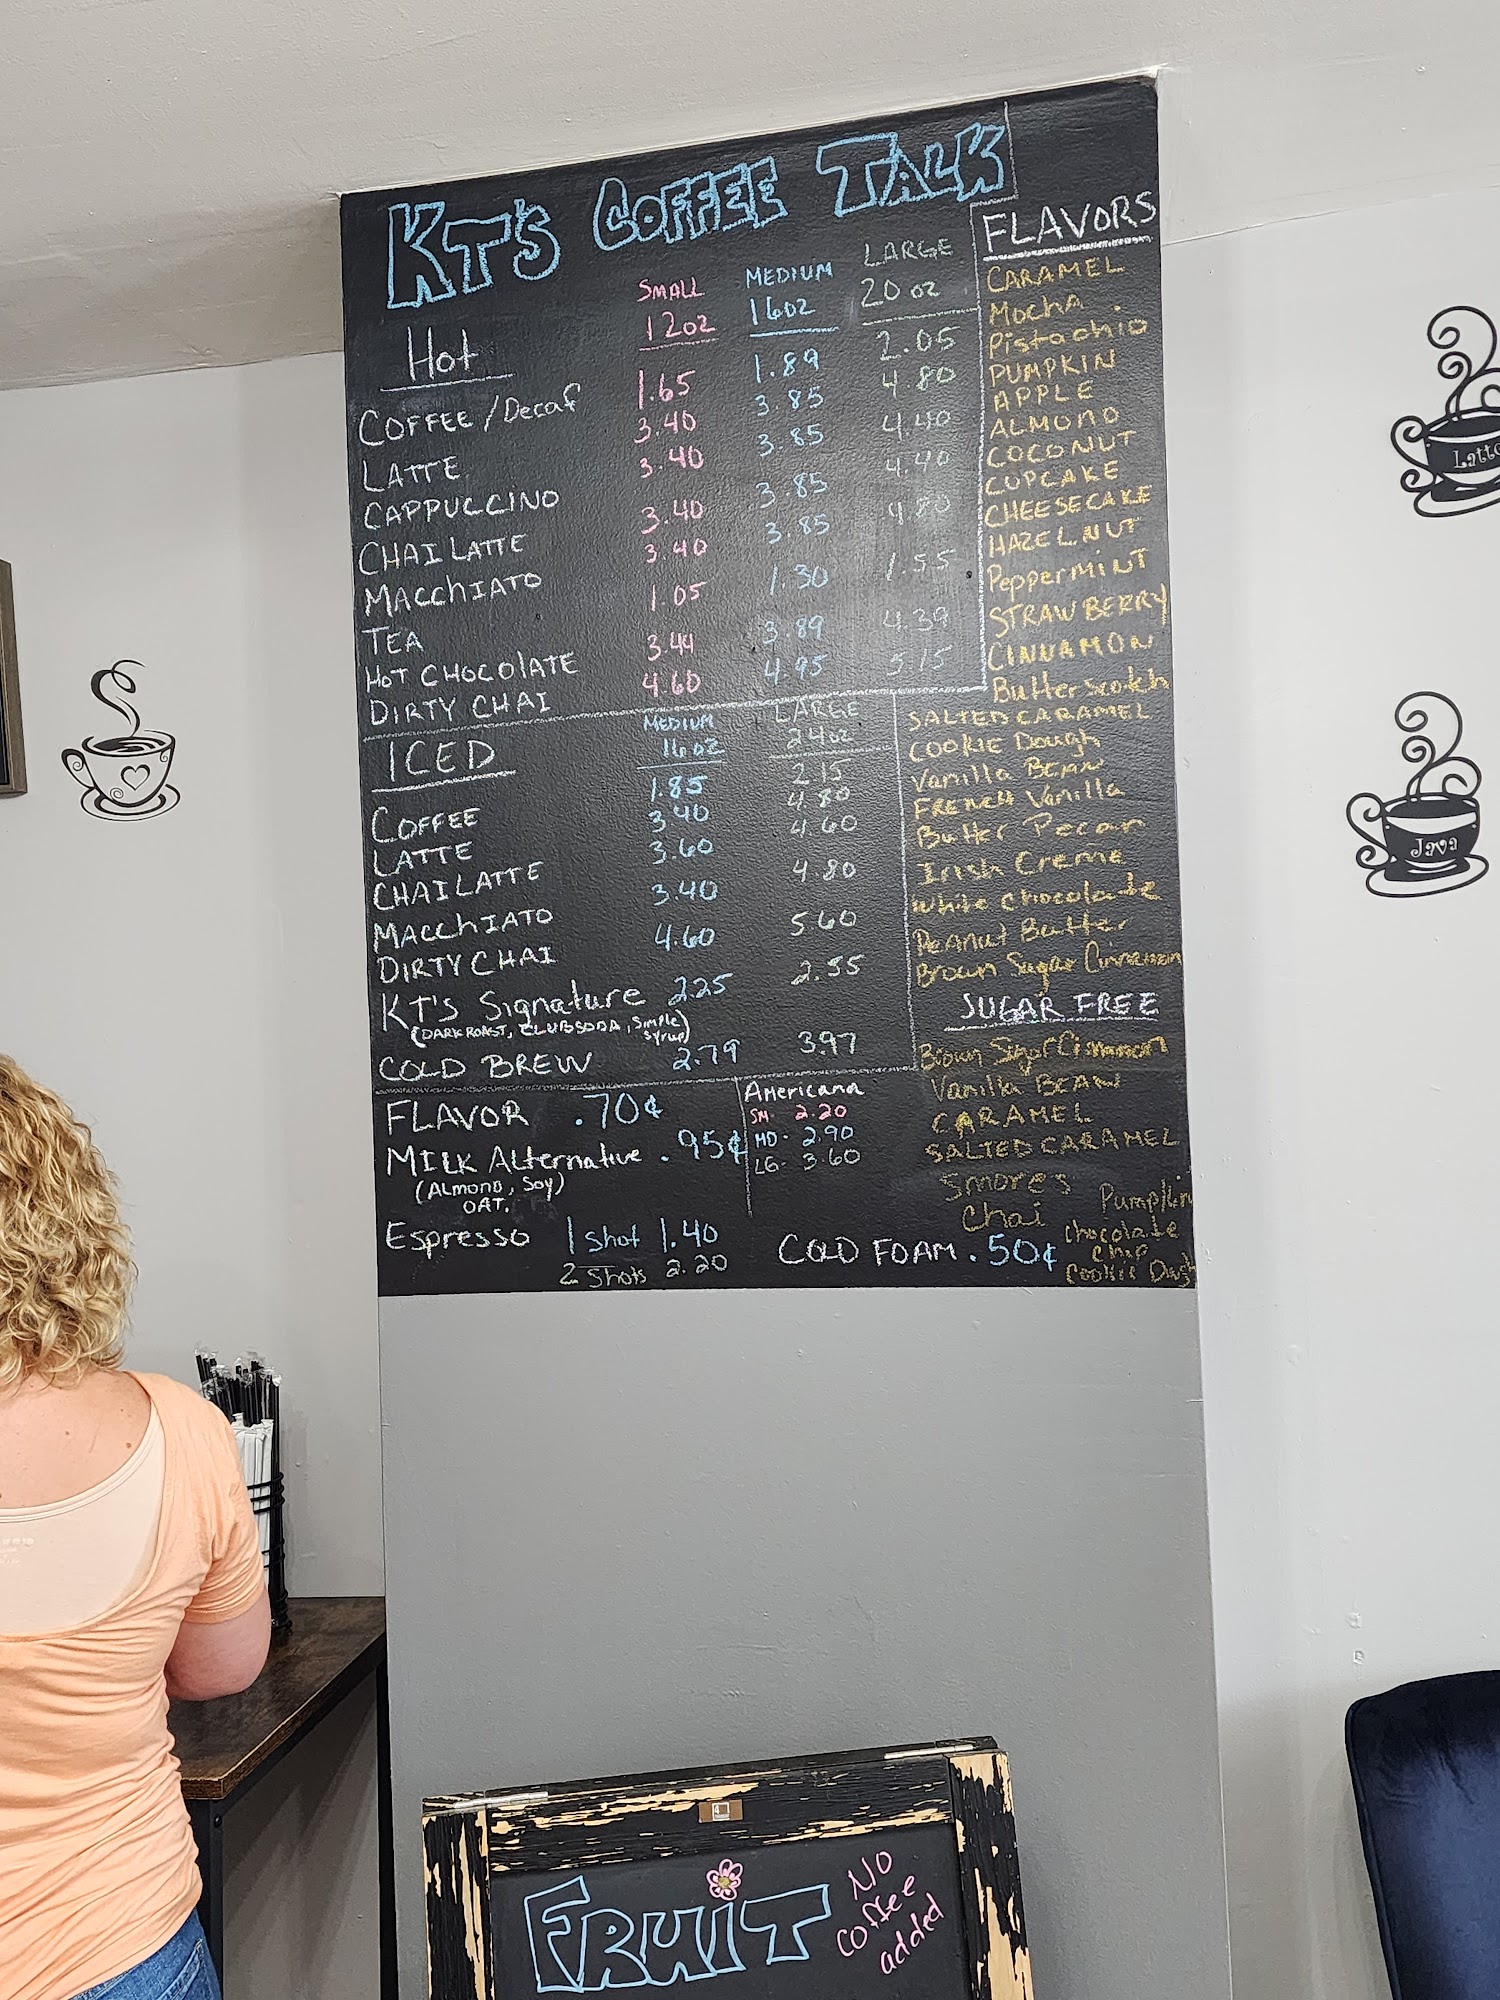 KT'S COFFEE TALK
SMALL MEDIUM LARGE
12oz 16oz 20oz
Hot
COFFEE/Decaf 1.65 1.89 2.05
LATTE 3.40 3.85 4.80
CAPPUCCINO 3.40 3.85 4.40
CHAI LATTE 3.40 3.85 4.40
MACChIATO 3.40 3.85 4.80
TEA 1.05 1.30 1.55
HOT CHOCOLATE 3.44 3.89 4.39
DIRTY CHAI 4.60 4.95 5.15
MEDIUM LARGE
ICED 16oz 24oz
COFFEE 1.85 2.15
LATTE 3.40 4.80
CHAI LATTE 3.60 4.60
MACChIATO 3.40 4.80
DIRTY CHAI 4.60 5.60
KT'S Signature 2.25 2.55
(DARK ROAST, CLUB SODA, Simple
syrup)
COLD BREW 2.79 3.97
FLAVOR .70¢
MILK Alternative .95¢
(ALMOND, SOY)
OAT.
Espresso 1 shot 1.40
2 shots 2.20
Americana
SM. 2.20
MD. 2.90
LG. 3.60
COLD FOAM .50¢
FLAVORS
CARAMEL
MOCHA
Pistachio
PUMPKIN
APPLE
ALMOND
COCONUT
CUPCAKE
CHEESECAKE
HAZELNUT
PepperMiNT
STRAWBERRY
CINNAMON
Butterscotch
SALTED CARAMEL
COOKIE Dough
Vanilla BEAN
FRENCH Vanilla
Butter Pecan
Irish Creme
White Chocolate
Peanut Butter
Brown Sugar Cinnamon
SUGAR FREE
Brown Sugar Cinnamon
Vanilla BEAN
CARAMEL
SALTED CARAMEL
Smores
Chai
Pumpkin
Chocolate
Chip
Cookie Dough
Latte
Java
FRUiT
No
coffee
added